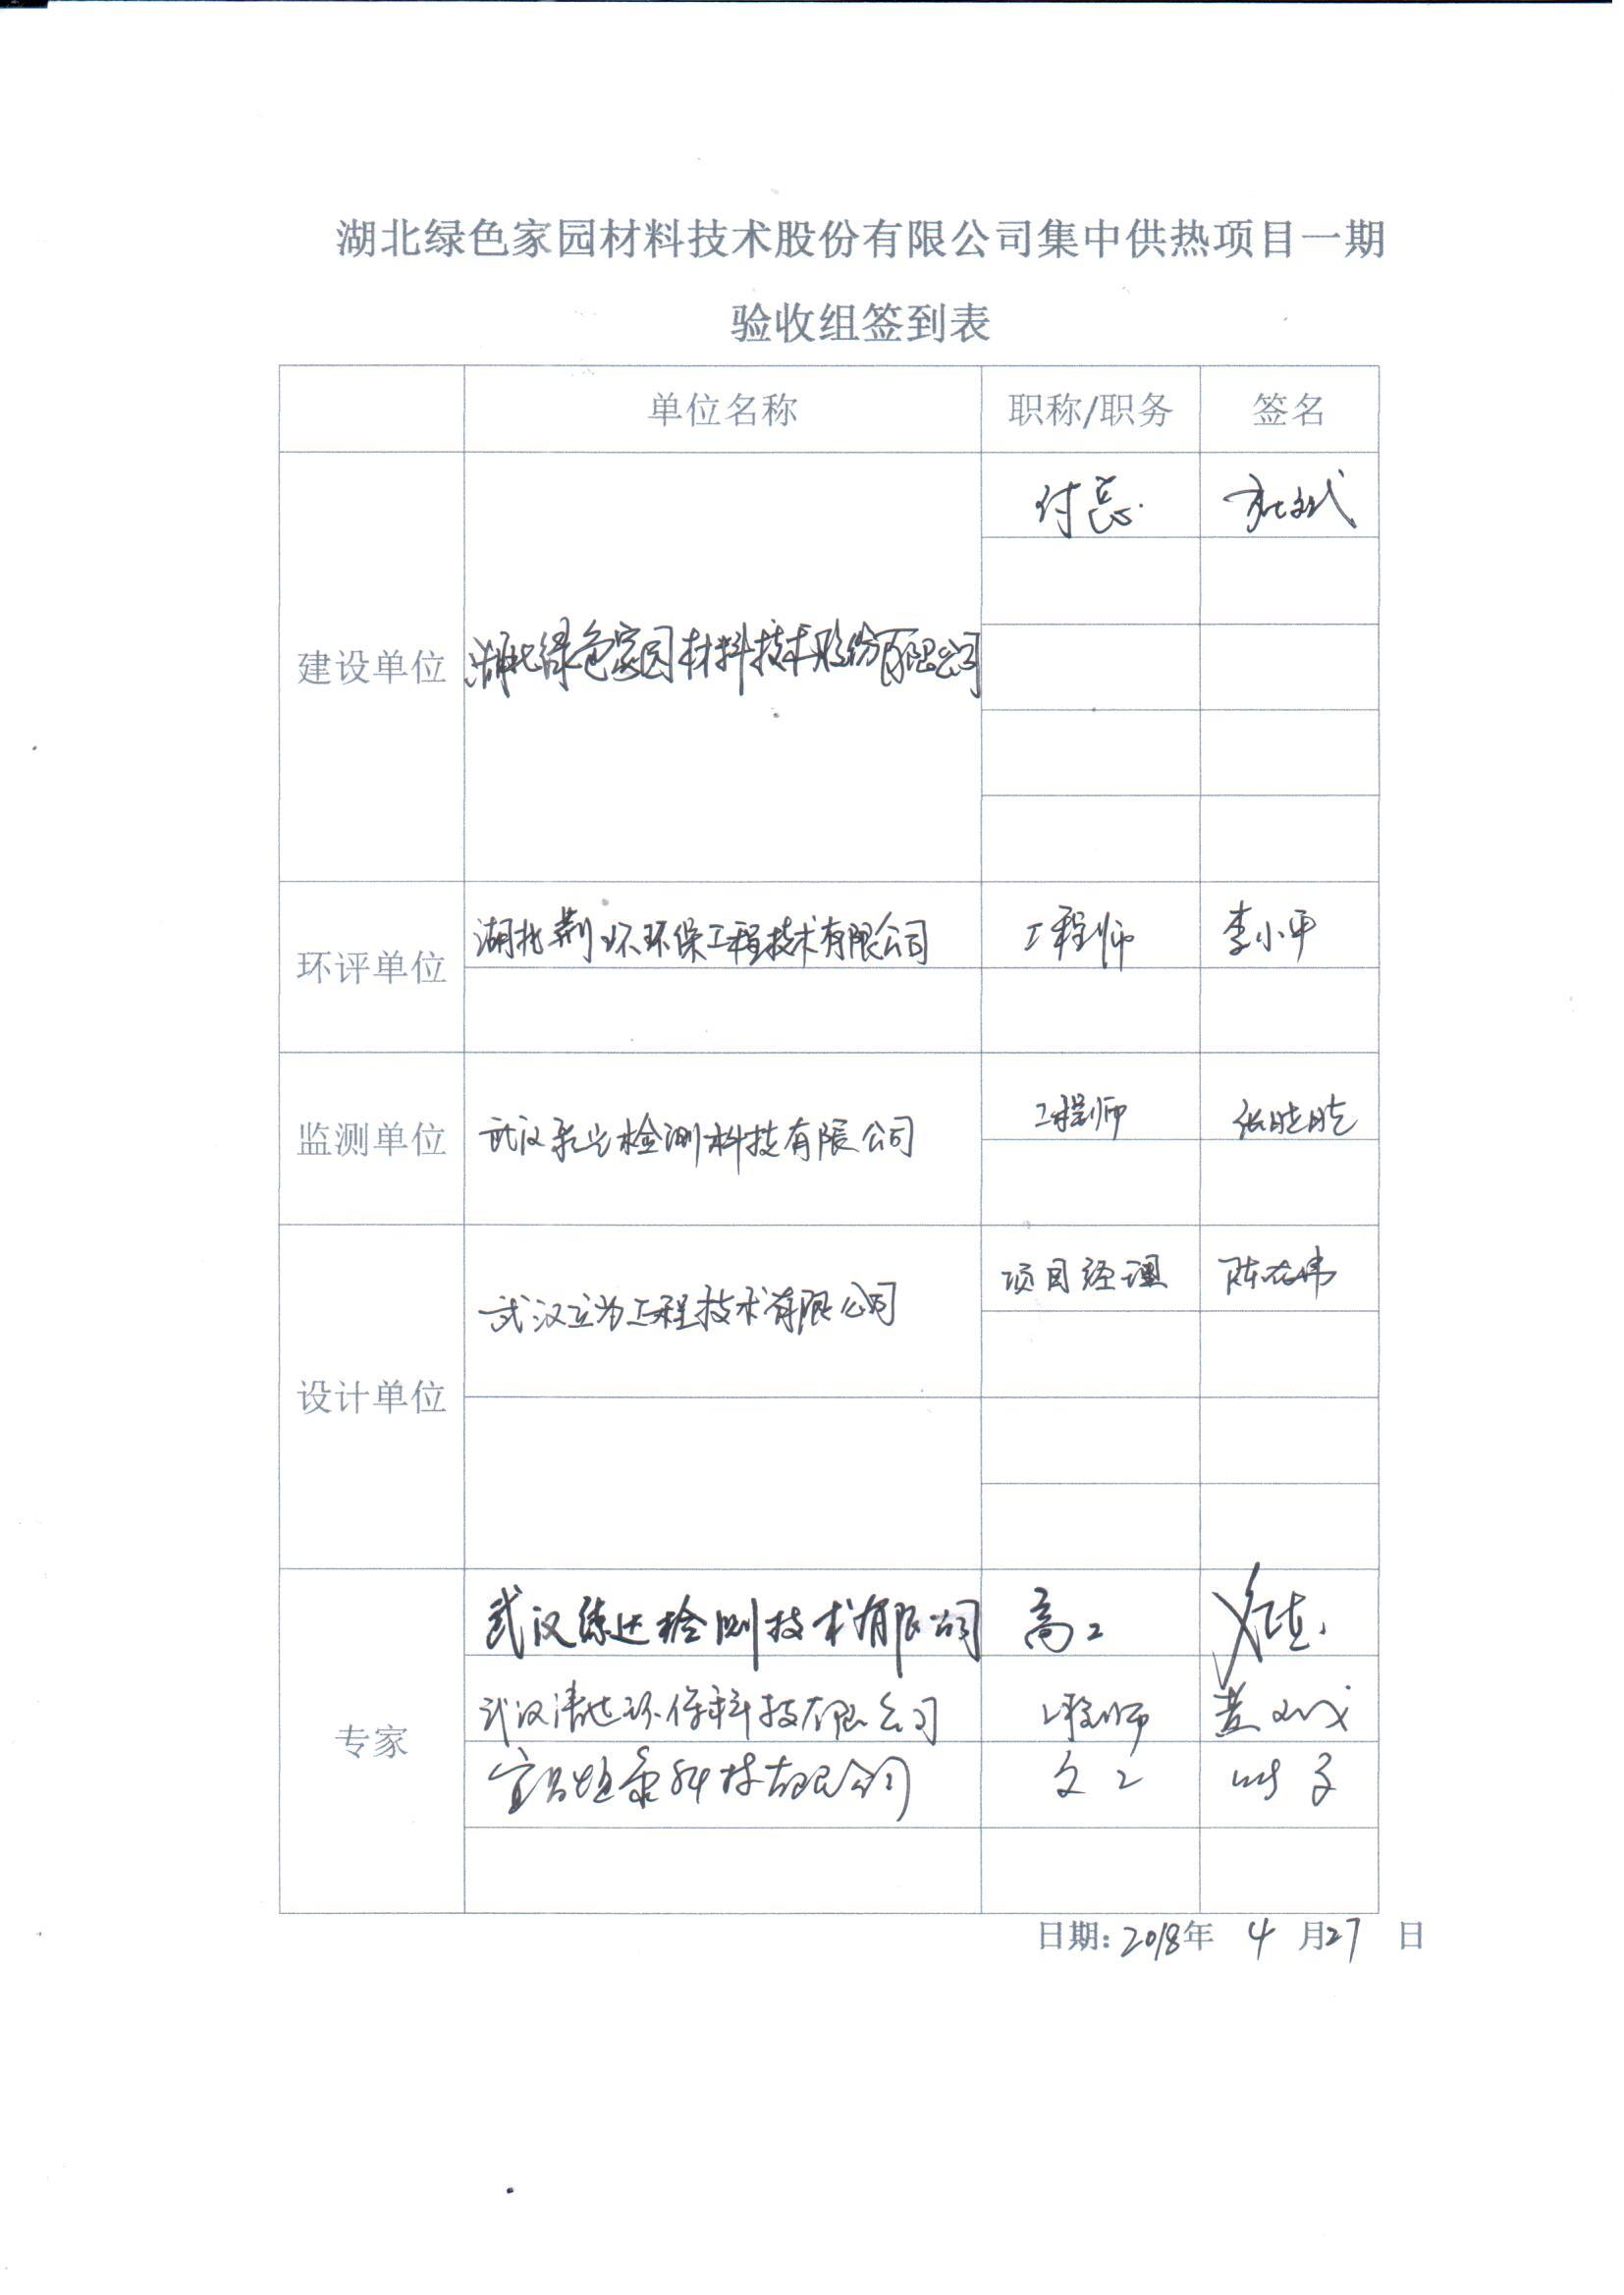 湖北绿色家园材料技术股份有限公司集中供热项目一期
验收组签到表
单位名称 职称/职务 签名
付总
建设单位 湖北绿色家园材料技术股份有限公司
环评单位 湖北荆州环环保工程技术有限公司 工程师 李小平
监测单位 武汉 检测科技有限公司 工程师 张晓晓
设计单位 武汉立为工程技术有限公司 项目经理 陈
专家
武汉 检测技术有限公司 高工
武汉 环保科技有限公司 工程师 黄
宜昌 科技有限公司 工
日期: 2018年 4 月27 日